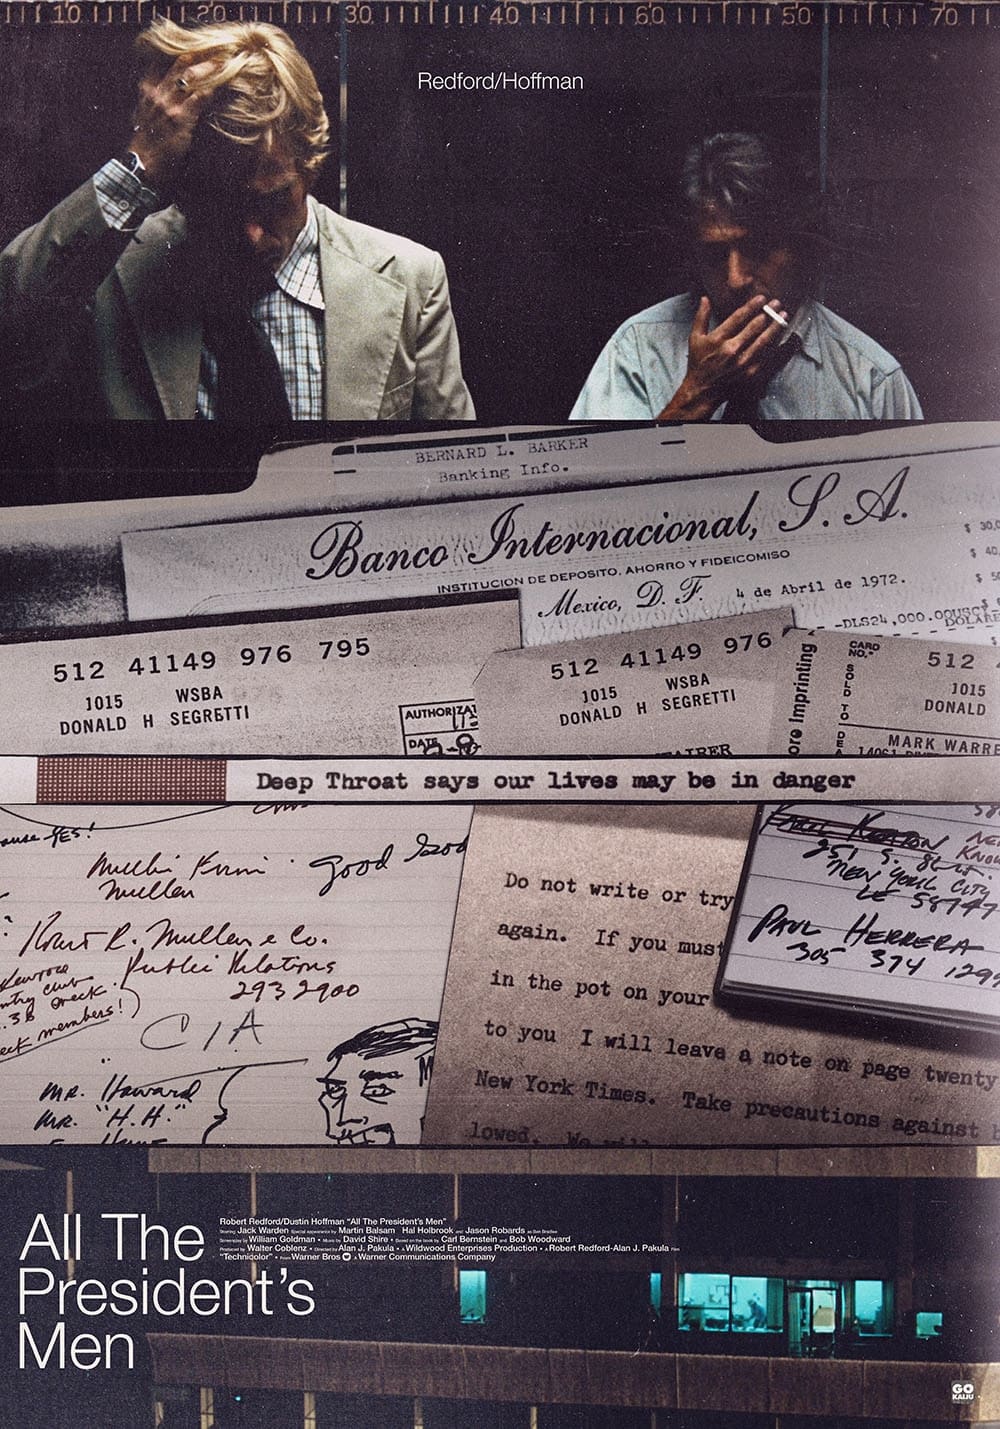 10 20 30 40 60 50 70
Redford/Hoffman
BERNARD L. BARKER
Banking Info.
Banco Internacional, S. A.
INSTITUCION DE DEPOSITO, AHORRO Y FIDEICOMISO
Mexico, D. F. 4 de Abril de 1972.
-DLS24,000.00USCY-
DOLARE
$ 30,0
$ 40,
$ 50
512 41149 976 795
1015 WSBA
DONALD H SEGRETTI
AUTHORIZAT
DATE
512 41149 976
1015 WSBA
DONALD H SEGRETTI
ore Imprinting
CARD NO.
SOLD TO
DEA
512
1015
DONALD
MARK WARRE
Deep Throat says our lives may be in danger
ause YES!
Good Good
Mullen
Robert R. Mullen & Co.
Public Relations
293 2900
check members!
CIA
MR. "Howard
MR. "H.H."
Do not write or try
again. If you must
in the pot on your
to you I will leave a note on page twenty
New York Times. Take precautions against
lowed. We will
251 S.
NEW YORK CITY
LE 58747
PAUL HERRERA
305 374 129
All The
President's
Men
Robert Redford/Dustin Hoffman "All The President's Men"
Starring Jack Warden Special appearance by Martin Balsam Hal Holbrook and Jason Robards as Ben Bradlee
Screenplay by William Goldman • Music by David Shire • Based on the book by Carl Bernstein and Bob Woodward
Produced by Walter Coblenz • Directed by Alan J. Pakula • A Wildwood Enterprises Production • A Robert Redford-Alan J. Pakula Film
"Technicolor" • From Warner Bros A Warner Communications Company
GO
KAIJU